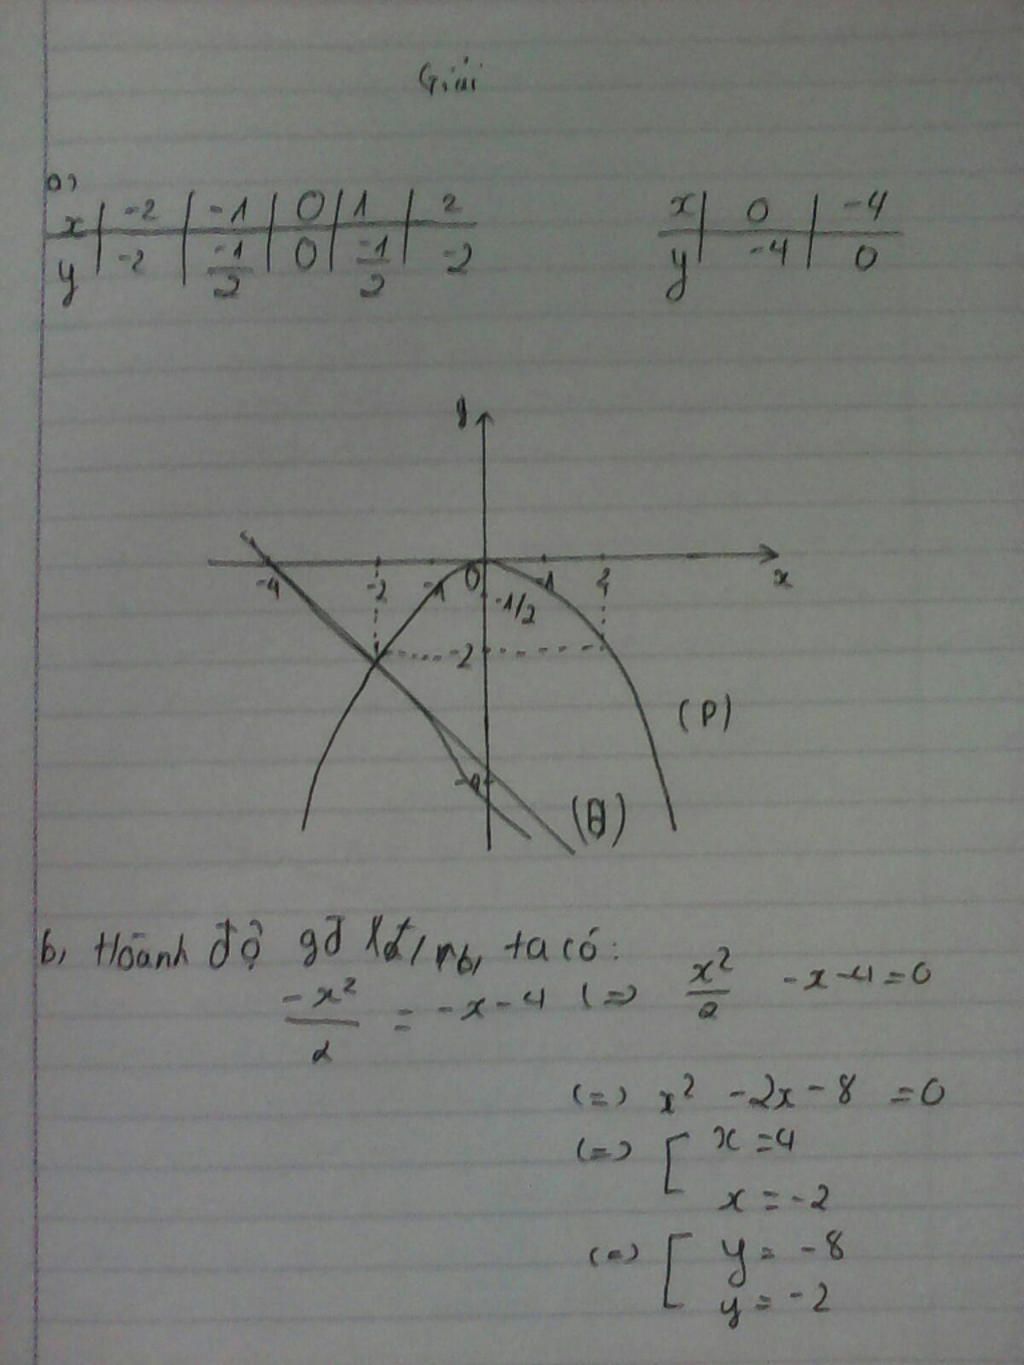 Giải
a,
x | -2 | -1 | 0 | 1 | 2
y | -2 | -1/2 | 0 | -1/2 | -2
x | 0 | -4
y | -4 | 0
y
-4 -2 -1 0 1 2 x
-1/2
2
(P)
-4
b, Hoành độ gđ ta có:
-x²/2 = -x-4 (=) x²/2 -x-4=0
(=) x² -2x-8 =0
(=) [ x=4
x=-2
(=) [ y= -8
y=-2